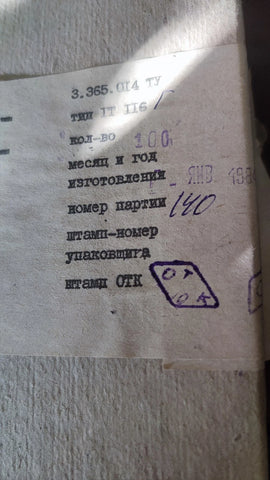 3.365.014 ТУ
тип 1Т 116 Г
кол-во 100
месяц и год
изготовления ЯНВ 198
номер партии 140
штамп-номер
упаковщица
штамп ОТК ОТК